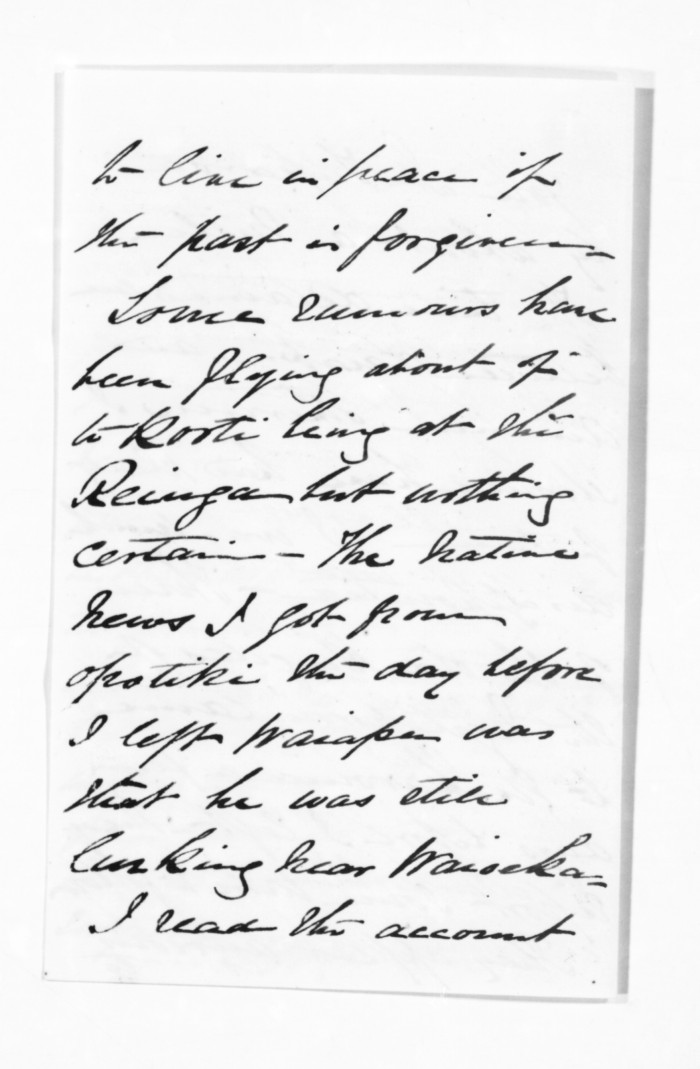 to live in peace if
the past is forgiven –
Some rumours have
been flying about of
te Kooti being at the
Reinga but nothing
certain – The Native
News I got from
opotiki the day before
I left Waiapu was
that he was still
lurking near Waioeka –
I read the account